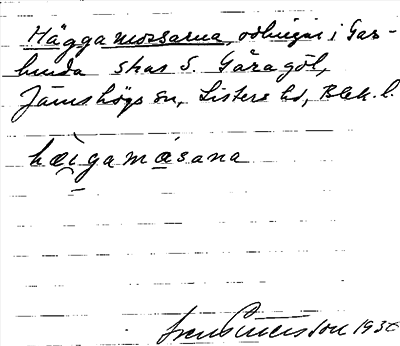 Häggamossarna, odlingar i Gar-
hunda skas S. Gåragöl,
Jämshögs sn, Listers hd, Blek. l.
hæigamåsana
1930